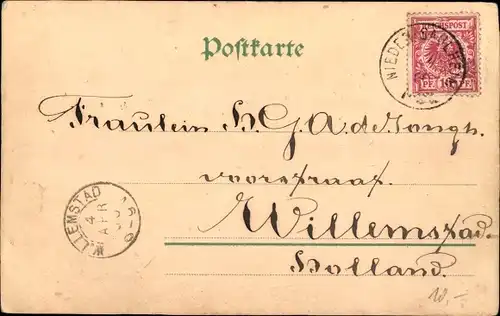 Postkarte
REICHSPOST
PF 10 PF
Fräulein H. G. A. de Jongh.
voorstraat.
Willemstad.
Holland.
WILLEMSTAD
4
APR
10.-